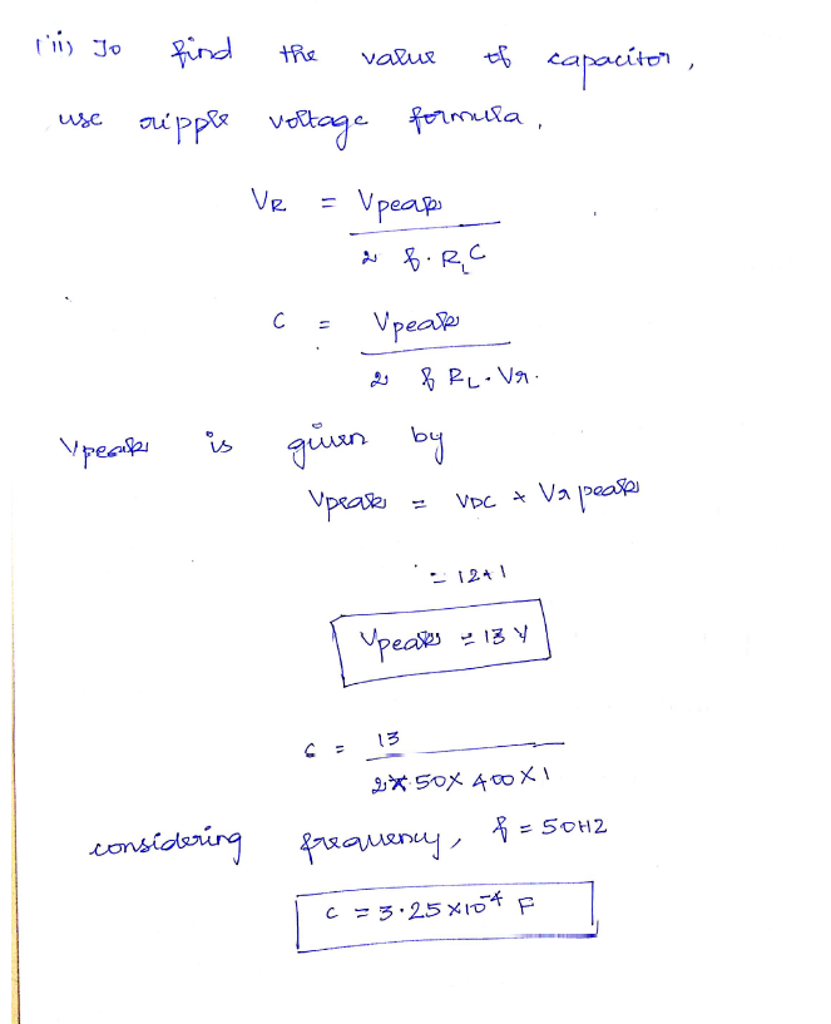 (iii) To find the value of capacitor,
use ripple voltage formula.
VR = Vpeak
2 f. RLC
C = Vpeak
2 f RL. Vr.
Vpeak is given by
Vpeak = VDC + Vr peak
= 12+1
Vpeak = 13 V
C = 13
2×50×400×1
considering frequency, f = 50HZ
C = 3.25×10⁻⁴ F